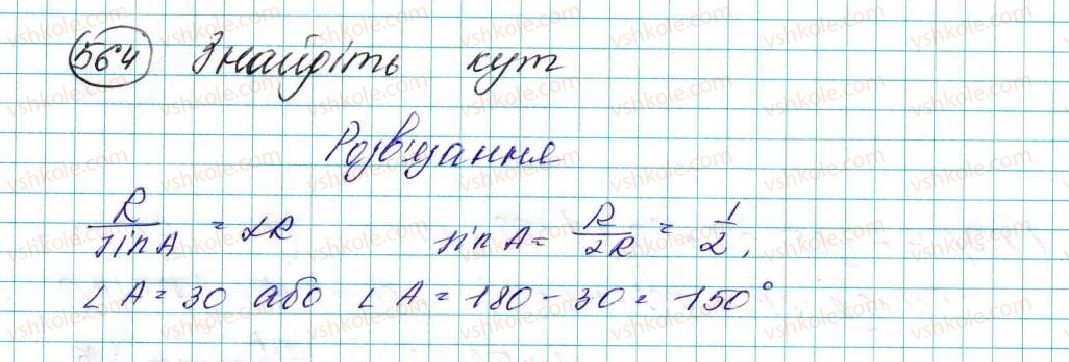 564 Знайдіть кут
Розв'язання
R/sin A = 2R sin A = R/2R = 1/2,
∠A = 30 або ∠A = 180 - 30 = 150°